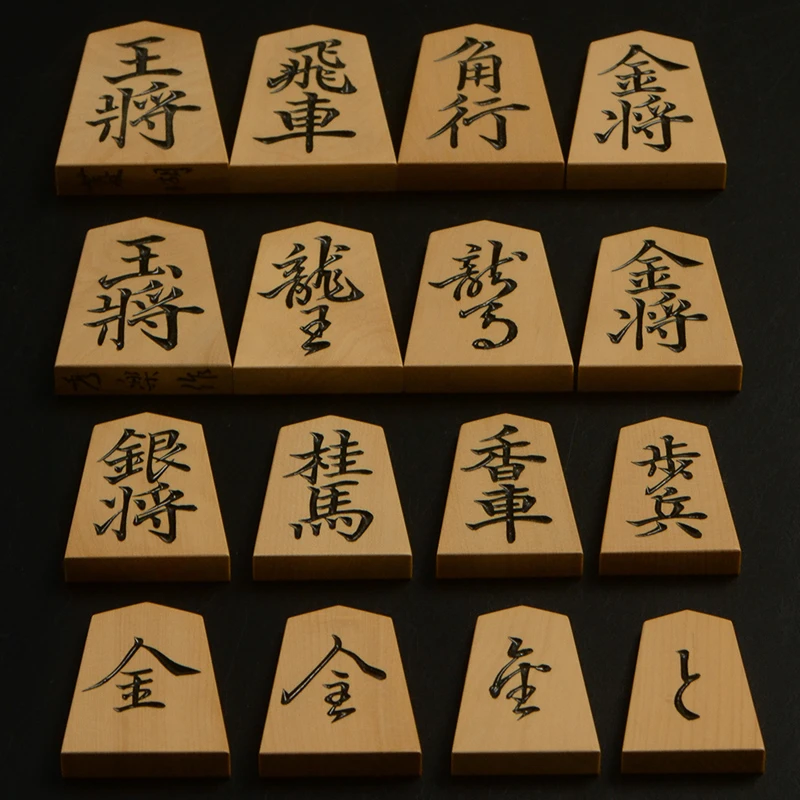 王將 飛車 角行 金将
作
玉將 龍王 龍馬 金将
銀将 桂馬 香車 歩兵
金 全 金 と